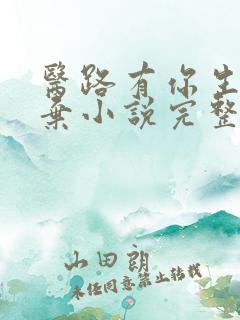 醫路有你生
棄小說完整
山田朗
未經同意禁止轉載